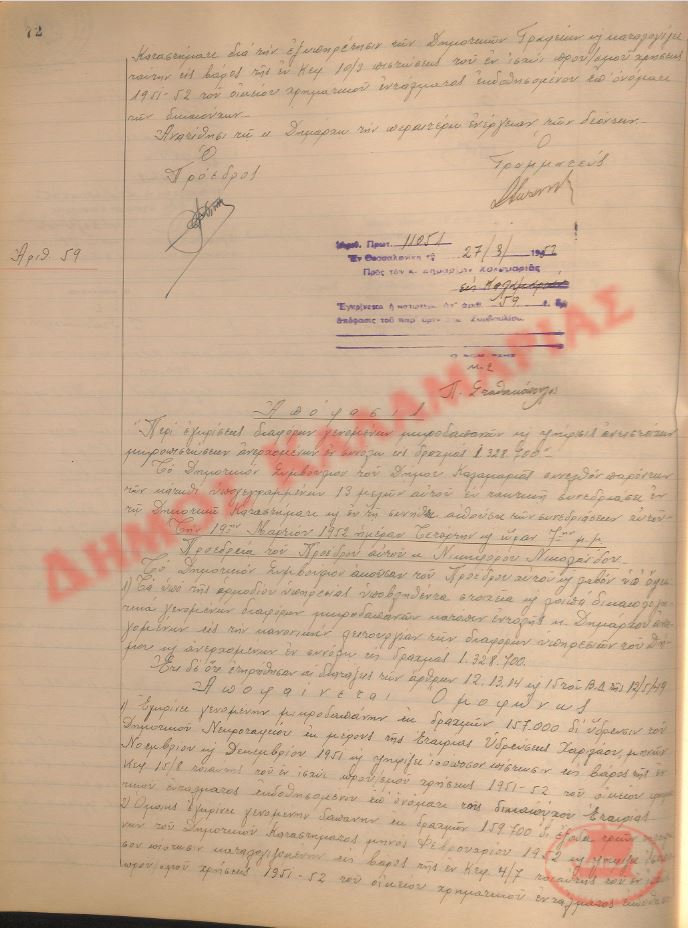 72
Καταστήματα διά τήν ἐξυπηρέτησιν τῶν Δημοτικῶν Γραφείων κ καταλογίζει
ταύτην εἰς βάρος τῆς ἐν Κεφ. 10/3 πιστώσεως τοῦ ἐν ἰσχύι προϋ/σμοῦ χρήσεως
1951-52 τοῦ οἰκείου χρηματικοῦ ἐντάλματος ἐκδοθησομένου ἐπ' ὀνόματι
τῶν δικαιούχων.
Ἀνατίθησι τῷ κ. Δημάρχῳ τήν περαιτέρω ἐνέργειαν τῶν δεόντων.
Ὁ
Πρόεδρος
Ὁ
Γραμματεύς
Ἀριθ. 59
Ἀριθ. Πρωτ. 11051
Ἐν Θεσσαλονίκῃ τῇ 27/3/1952
Πρός τόν κ. Δήμαρχον Καλαμαριᾶς
εἰς Καλαμαριάν
Ἐγκρίνεται ἡ κατωτέρω ὑπ' ἀριθ. 59 ἐ. ἔ.
ἀπόφασις τοῦ παρ' ὑμῖν Δημ. Συμβουλίου
Ἀπόφασις
Περί ἐγκρίσεως διαφόρων γενομένων μικροδαπανῶν κ ψηφίσεως ἀντιστοίχων
μικροπιστώσεων ἀνερχομένων ἐν συνόλῳ εἰς δραχμάς 1.328.700.-
Τό Δημοτικόν Συμβούλιον τοῦ Δήμου Καλαμαριᾶς συνελθόν παρόντων
τῶν κάτωθι ὑπογεγραμμένων 13 μελῶν αὐτοῦ ἐν τακτικῇ συνεδριάσει ἐν
τῷ Δημοτικῷ Καταστήματι κ ἐν τῇ συνήθει αἰθούσῃ τῶν συνεδριάσεων αὐτοῦ
Τήν 19ην Μαρτίου 1952 ἡμέραν Τετάρτην κ ὥραν 7ην μ.μ.
Προεδρείᾳ τοῦ Προέδρου αὐτοῦ κ. Νικηφόρου Νικολαΐδου
Τό Δημοτικόν Συμβούλιον ἀκοῦσαν τοῦ Προέδρου αὐτοῦ κ λαβόν ὑπ' ὄψει
1) Τά ὑπό τῆς ἁρμοδίου ὑπηρεσίας ὑποβληθέντα στοιχεῖα κ λοιπά δικαιολογη-
τικά γενομένων διαφόρων μικροδαπανῶν κατόπιν ἐντολῆς κ. Δημάρχου ἀνα-
γομένων εἰς τήν κανονικήν λειτουργίαν τῶν διαφόρων ὑπηρεσιῶν τοῦ Δή-
μου κ ἀνερχομένων ἐν συνόλῳ εἰς δραχμάς 1.328.700.
Ἔτι δέ ὅτι ἐτηρήθησαν αἱ διατάξεις τῶν ἄρθρων 12, 13, 14 κ 15 τοῦ Β.Δ. τῆς 12/5/49
Ἀποφαίνεται Ὁμοφώνως
1) Ἐγκρίνει γενομένην μικροδαπάνην ἐκ δραχμῶν 157.000 δι' ὕδρευσιν τοῦ
Δημοτικοῦ Νεκροταφείου ἐκ μέρους τῆς Ἑταιρίας Ὑδρεύσεως Χαριλάου, μηνῶν
Νοεμβρίου κ Δεκεμβρίου 1951 κ ψηφίζει ἰσόποσον πίστωσιν εἰς βάρος τῆς ἐν
Κεφ. 15/8 τοιαύτης τοῦ ἐν ἰσχύι προϋ/σμοῦ χρήσεως 1951-52 τοῦ οἰκείου χρημα-
τικοῦ ἐντάλματος ἐκδοθησομένου ἐπ' ὀνόματι τῆς δικαιούχου Ἑταιρίας
2) Ὁμοίως ἐγκρίνει γενομένην δαπάνην ἐκ δραχμῶν 159.700 δι' ἔξοδα
τοῦ Δημοτικοῦ Καταστήματος μηνός Φεβρουαρίου 1952 κ ψηφίζει ἰσόπο-
σον πίστωσιν καταλογιζομένην εἰς βάρος τῆς ἐν Κεφ. 4/7 τοιαύτης τοῦ ἐν ἰσχύι
προϋ/σμοῦ χρήσεως 1951-52 τοῦ οἰκείου χρηματικοῦ ἐντάλματος ἐκδοθησο-
ΔΗΜΟΣ ΚΑΛΑΜΑΡΙΑΣ